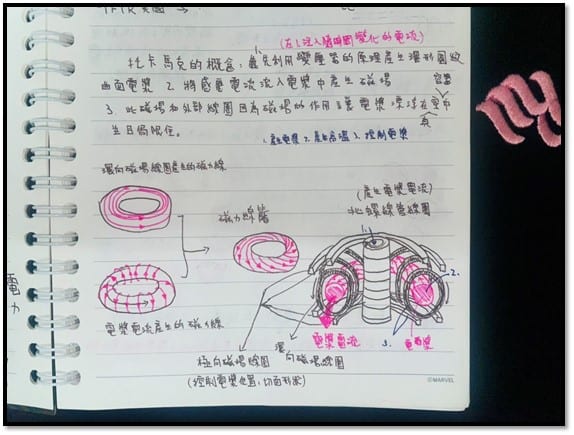 TFTR
(在1.注入隨時間變化的電流)
托卡馬克的概念:1.首先利用變壓器的原理產生環形圓紋
曲面電漿 2.將感應電流流入電漿中產生磁場
容器
3.此磁場和外部線圈因為磁場的作用讓電漿漂浮在中
真
並且侷限住。
1.產生電漿 2.產生高溫 3.控制電漿
環向磁場線圈產生的磁力線
(產生電漿電流)
磁力線
螺線管線圈
1.
2.
電力
電漿電流
3.
電漿
電漿電流產生的磁力線
極向磁場線圈
環向磁場線圈
(控制電漿位置,切面形狀)
©MARVEL